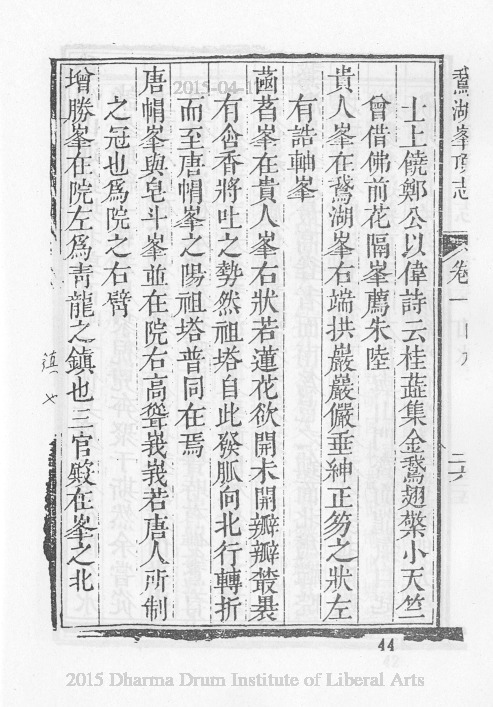 鵞湖峯頂志 卷一
士上饒鄭公以偉詩云桂蘂集金鵞翅檠小天竺
曾借佛前花隔峯薦朱陸
貴人峯在鵞湖峯右端拱巖巖儼垂紳正笏之狀左
有誥軸峯
菡萏峯在貴人峯右狀若蓮花欲開未開瓣瓣叢褁
有含香將吐之勢然祖塔自此發脈向北行轉折
而至唐帽峯之陽祖塔普同在焉
唐帽峯與皂斗峯並在院右高聳峩峩若唐人所制
之冠也爲院之右臂
增勝峯在院左爲青龍之鎮也三官殿在峯之北
鎮也
44
2015-04-1
2015 Dharma Drum Institute of Liberal Arts